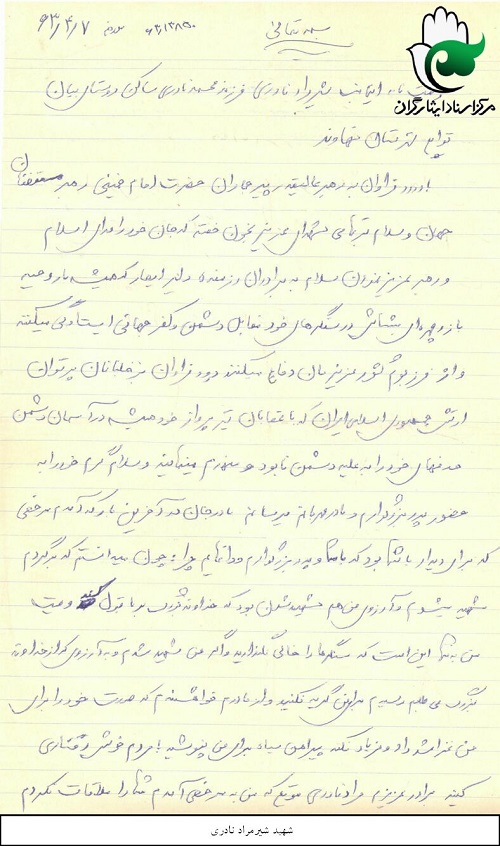 بسمه تعالی
۶۳/۴/۷
مرکز اسناد ایثارگران
نادری فرزند محمد نادری ساکن روستای بیان
توابع شهرستان نهاوند
با درود فراوان به رهبر عالیقدر پیر جماران حضرت امام خمینی رهبر مستضعفان
جهان و سلام بر تمامی شهدای عزیز بخون خفته که جان خود را فدای اسلام
و رهبر عزیز نمودن سلام به برادران رزمنده دلیر که همیشه با روحیه
باز و چهره‌ای بشاش در سنگرهای خود مقابل دشمن و کفر جهانی ایستادگی میکنند
و از مرز بوم کشور عزیزمان دفاع میکنند درود فراوان بر خلبانان پرتوان
ارتش جمهوری اسلامی ایران که با عقابان تیز پرواز خود همیشه در آسمان دشمن
هدفهای خود را به علیه دشمن نابود و منهدم مینمایند و سلام گرم خود را به
حضور پدر بزرگوارم و مادر مهربانم میرسانم مادر جان من آخرین بار که آمدم مرخصی
که برای دیدار با شما بود که با شما و پدر بزرگوارم وداع نمایم چرا چون میدانستم که برگردم
شهید میشوم و آرزوی من هم شهید شدن بود که خداوند بزرگ مرا قبول کند وصیت
من به شما این است که سنگرها را خالی نگذارید و اگر من شهید شدم و به آرزوی که از خداوند
بزرگ می طلبم رسیدم برای من گریه نکنید و از مادرم خواهشمندم که صورت خود را برای
من نخراشد داد و فریاد نکند پیراهن سیاه برای من نپوشید با مردم خوش رفتاری
کنید برادر عزیزم مراد نادری موقع که من به مرخصی آمدم شما را ملاقات نکردم
شهید شیرمراد نادری